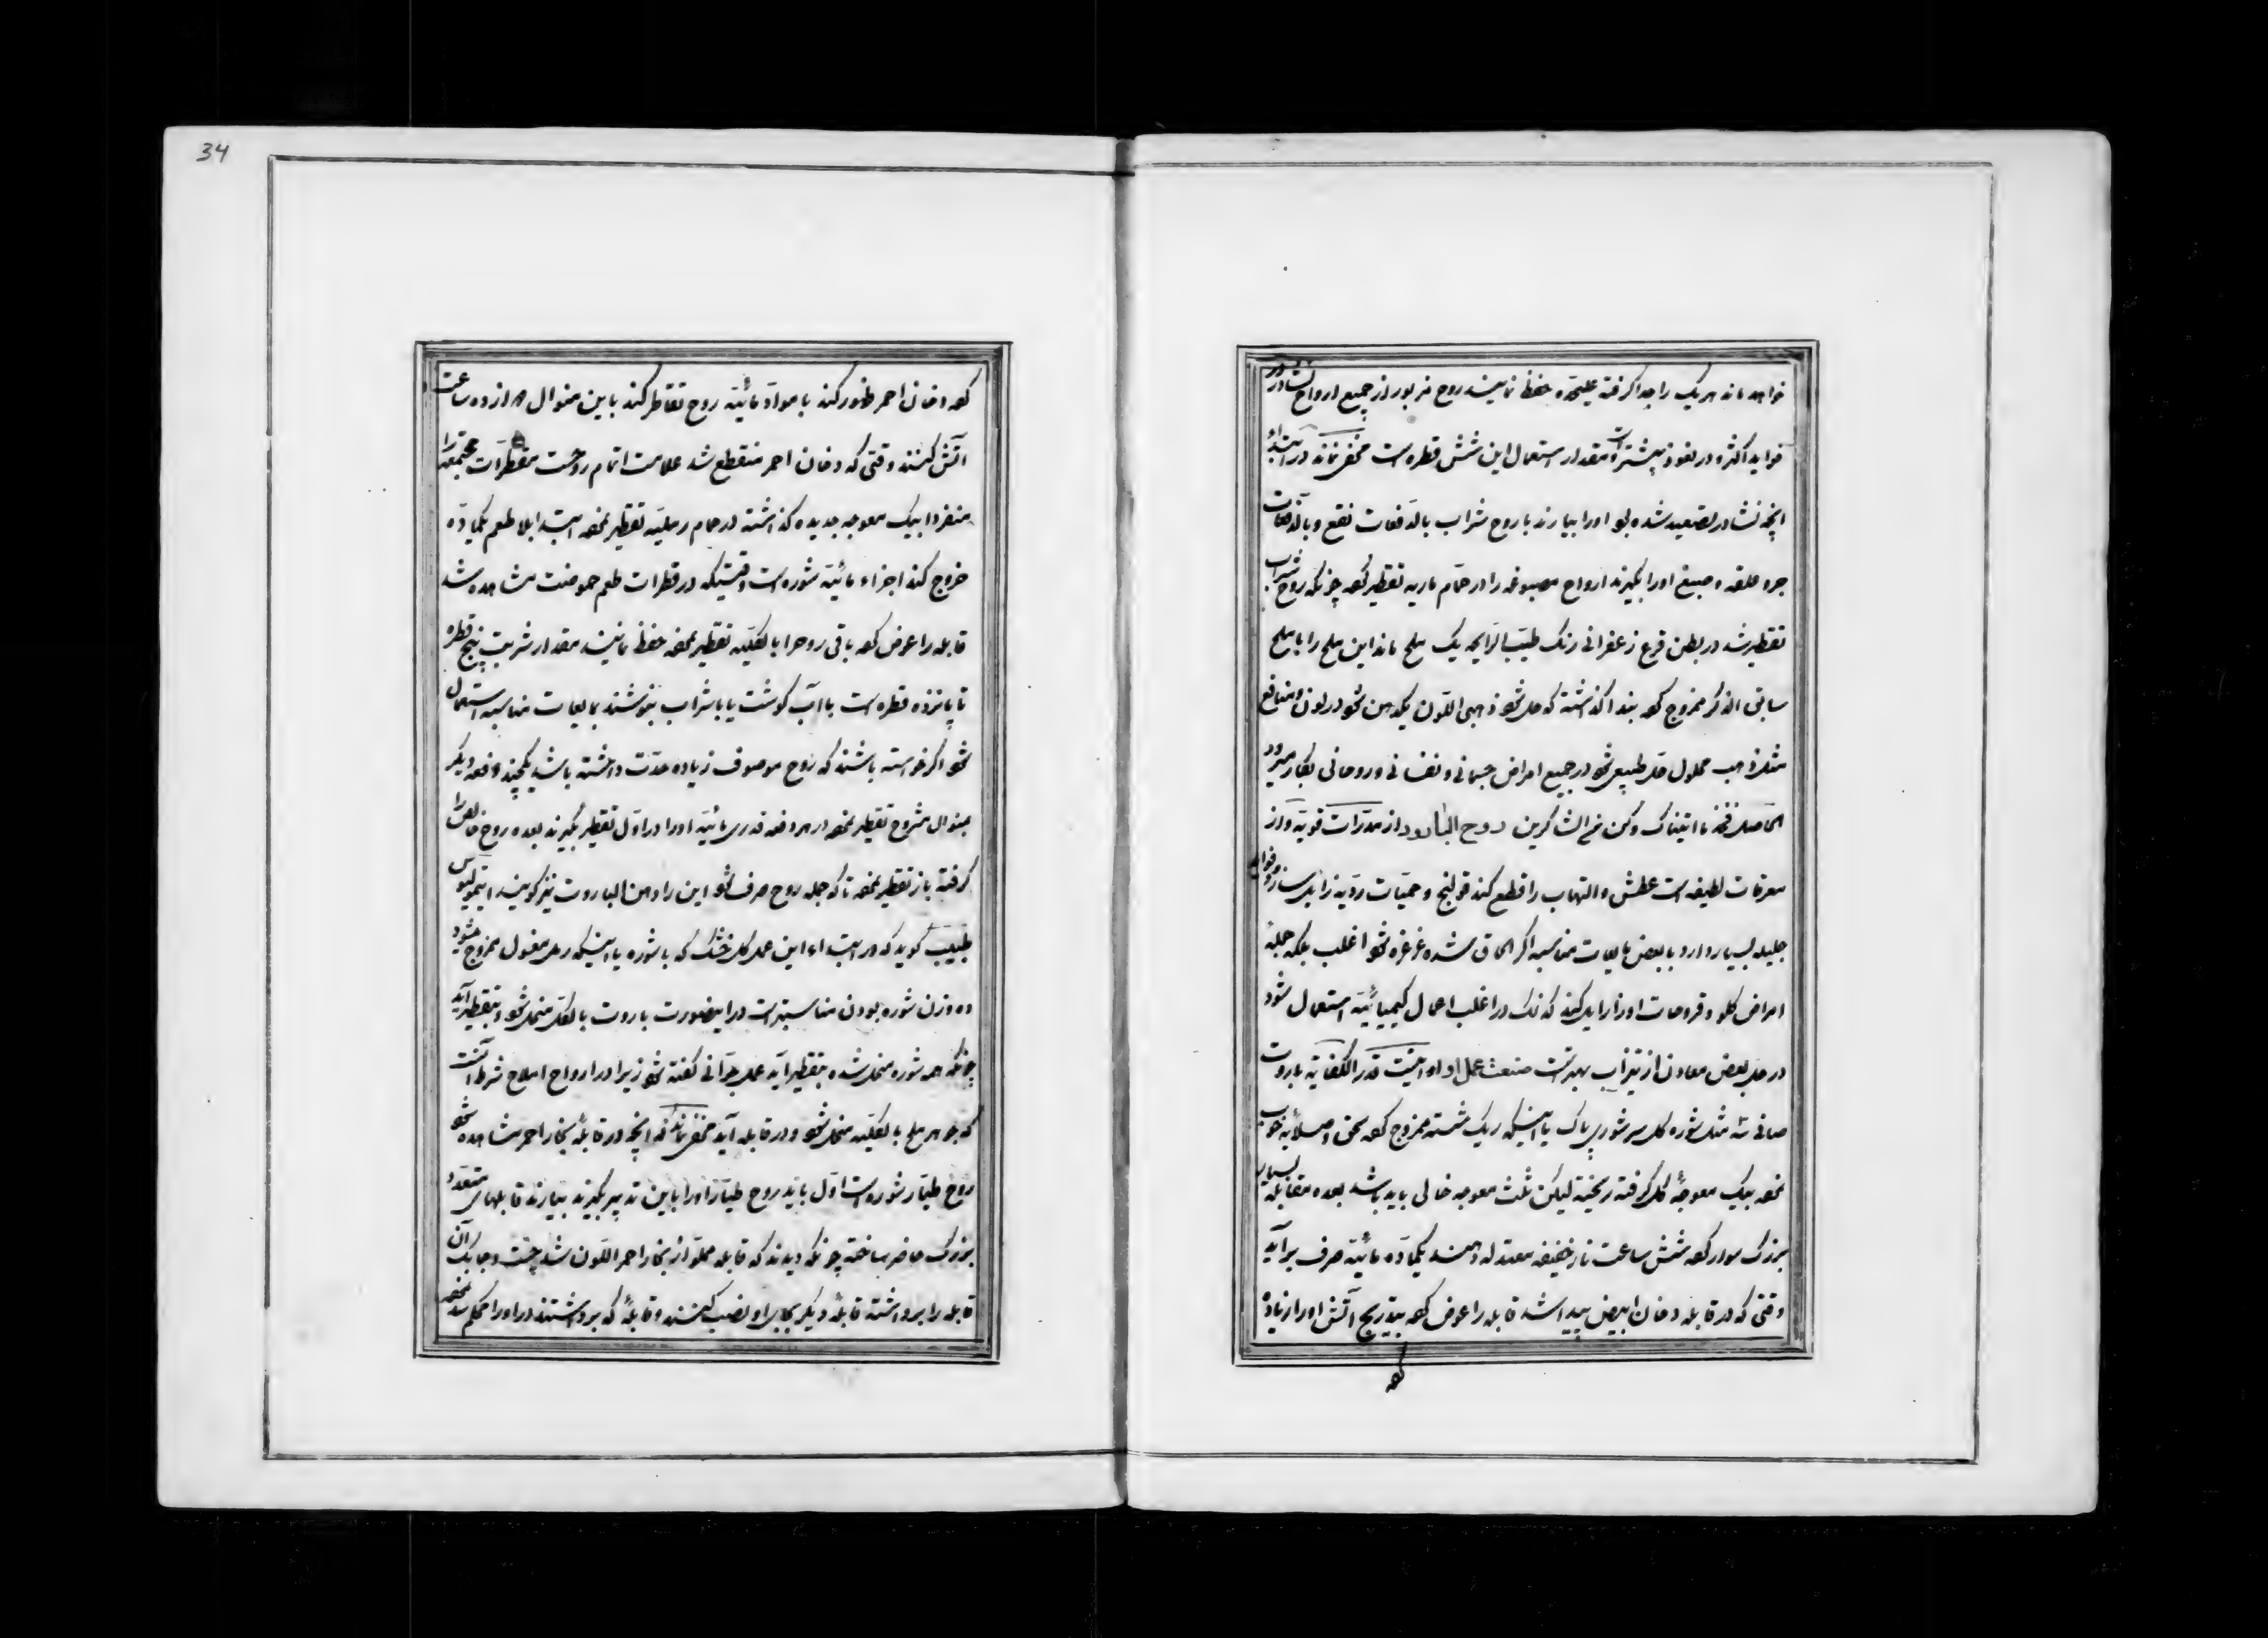 خواهد ماند هریک را جدا گرفته علیحده حفظ نمایند روح مزبور از جمیع ارواح نشادر در
فواید اکثر و در نفوذ بیشتر است مقدار استعمال این شش قطره است مخفی نماند در ابتداء
آنچه نشادر تصعید شده بود او را بیارند با روح شراب بالدفعات نقع و بالدفعات
جوهر علقه و صبغ او را بگیرند ارواح مصبوغه را در حمام ماریه تقطیر کرده چونکه روح شراب
تقطیر شد در بطن قرع زعفرانی رنگ طیب الرایحه یک ملح ماند این ملح را با ملح
سابق الذکر ممزوج کرده بندا گذاشته که حل شود ذهبی اللون یک دهن شود در لون و منافع
مثل ذهب محلول حل طبیعی شود در جمیع امراض جسمانی و نفسانی و روحانی بکار میرود
الحاصل فخذ ما آتیناک و کن من الشاکرین روح البارود از مدرات قویه و از
معرقات لطیفه است عطش و التهاب را قطع کند قولنج و حمیات ردیه زایل سازد و فواید
جلیله بسیار دارد با بعض مایعات مناسبه اگر الحاق شده غرغره شود اغلب بلکه جمله
امراض گلو و قروحات او را زایل کند که نمک در اغلب اعمال کیمیائیه استعمال شود
در حل بعض معادن از تیزاب بهتر است صنعت عمل او اینست قدر الکفایه باروت
صافی سه مثل شوره گل سرشوری پاک یا اینکه ریک شسته ممزوج کرده سحق و صلایه خوب
نموده بیک معوجه گل گرفته ریخته لیکن ثلث معوجه خالی باید باشد بعده مقابله بسیار
بزرگ سوار کرده شش ساعت نار خفیفه معتدله دهند یکماده مائیه صرف برآید
وقتی که در قابله دخان ابیض پیدا شد قابله را عوض کرده بتدریج آتش او را زیاده
کرده
34
کرده دخان احمر ظهور کند با مواد مائیه روح تقاطر کند باین منوال دوازده ساعت
آتش کنند وقتی که دخان احمر منقطع شد علامت اتمام روحست مقطرات مجتمعه را
منفردا بیک معوجه جدیده گذاشته در حمام رملیه تقطیر نموده ابتدا بلا طعم یکماده
خروج کند اجزاء مائیه شوره است وقتیکه در قطرات طعم حموضت مشاهده شد
قابله را عوض کرده باقی روح را بالکلیه تقطیر نموده حفظ نمایند مقدار شربت پنج قطره
تا پانزده قطره است با آب گوشت یا با شراب بنوشند بمایعات مناسبه استعمال
شود اگر خواسته باشند که روح موصوف زیاده حدت داشته باشد یکچند دفعه دیگر
بمنوال مشروح تقطیر نموده در هر دفعه قدری مائیه او را در اول تقطیر بگیرند بعده روح خالص را
گرفته باز تقطیر نموده تا که جمله روح صرف شود این را دهن الباروت نیز گویند
طبیب گوید که در ابتداء این عمل گل خشک که با شوره یا اینکه رمل مغسول ممزوج میشود
ده وزن شوره بودن مناسبتر است در اینصورت باروت بالکل منحل شود و بتقطیر آید
چونکه همه شوره منحل شده بتقطیر آید عمل جوانی گفته شود زیرا در ارواح املاح شرط آنست
که جوهر ملح بالکلیه منحل شود و در قابله آید مخفی نماند که آنچه در قابله بخار احمر مشاهده شود
روح طیار شوره است اول باید روح طیار او را باین تدبیر بگیرند بیارند قابلهای متعدد
بزرگ حاضر ساخته چونکه دیدند که قابله مملو از بخار احمر اللون شد چست و چابک آن
قابله را برداشته قابله دیگر بجای او نصب کنند و قابله که برداشتند در او را محکم سد نموده